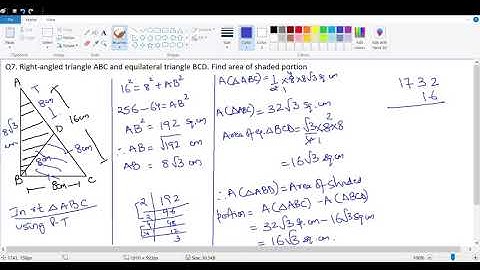 Q7. Right-angled triangle ABC and equilateral triangle BCD. Find area of shaded portion
A
T
8cm
16cm
8√3
cm
D
8cm
B
8cm
C
In rt △ABC
using P.T
16² = 8² + AB²
256 - 64 = AB²
AB² = 192 sq.cm
∴ AB = √192 cm
AB = 8√3 cm
2 192
96
48
3
A(△ABC) = 1/2 × 8 × 8√3 sq.cm
A(△ABC) = 32√3 sq.cm
Area of eq. △BCD = √3/4 × 8 × 8
= 16√3 sq.cm
∴ A(△ABD) = Area of shaded
portion = A(△ABC) - A(△BCD)
= 32√3 sq.cm - 16√3 sq.cm
= 16√3 sq.cm.
1732
16
100%